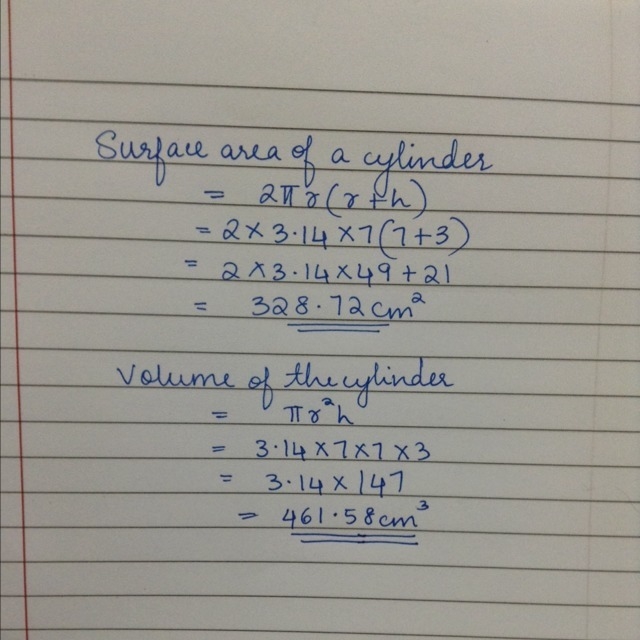 Surface area of a cylinder
= 2πr(r+h)
= 2×3.14×7(7+3)
= 2×3.14×49+21
= 328.72cm²
Volume of the cylinder
= πr²h
= 3.14×7×7×3
= 3.14×147
= 461.58cm³